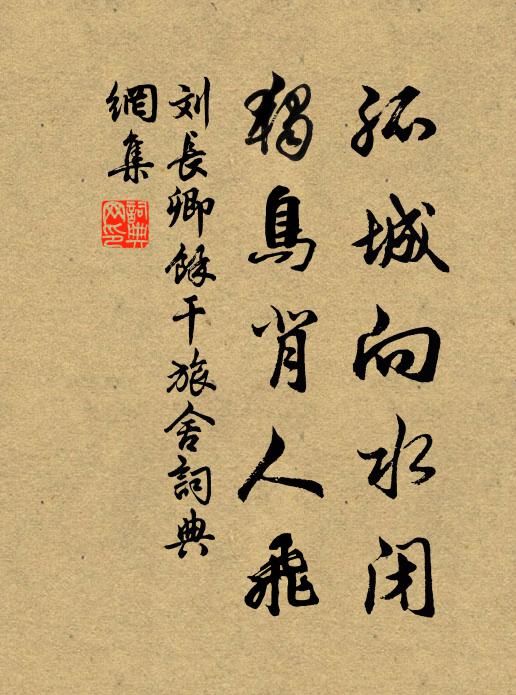 孤城向水闭
独鸟背人飛
刘長卿餘干旅舍詞典
網集
詞典網印